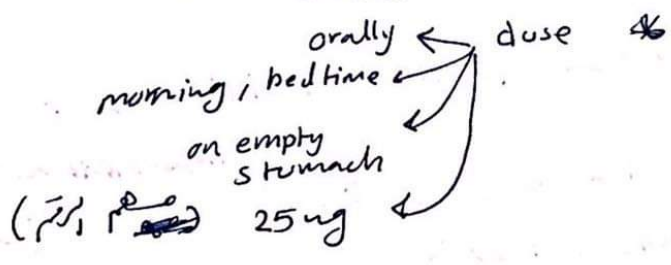 orally duse
morning, bedtime
on empty
stumach
25ug